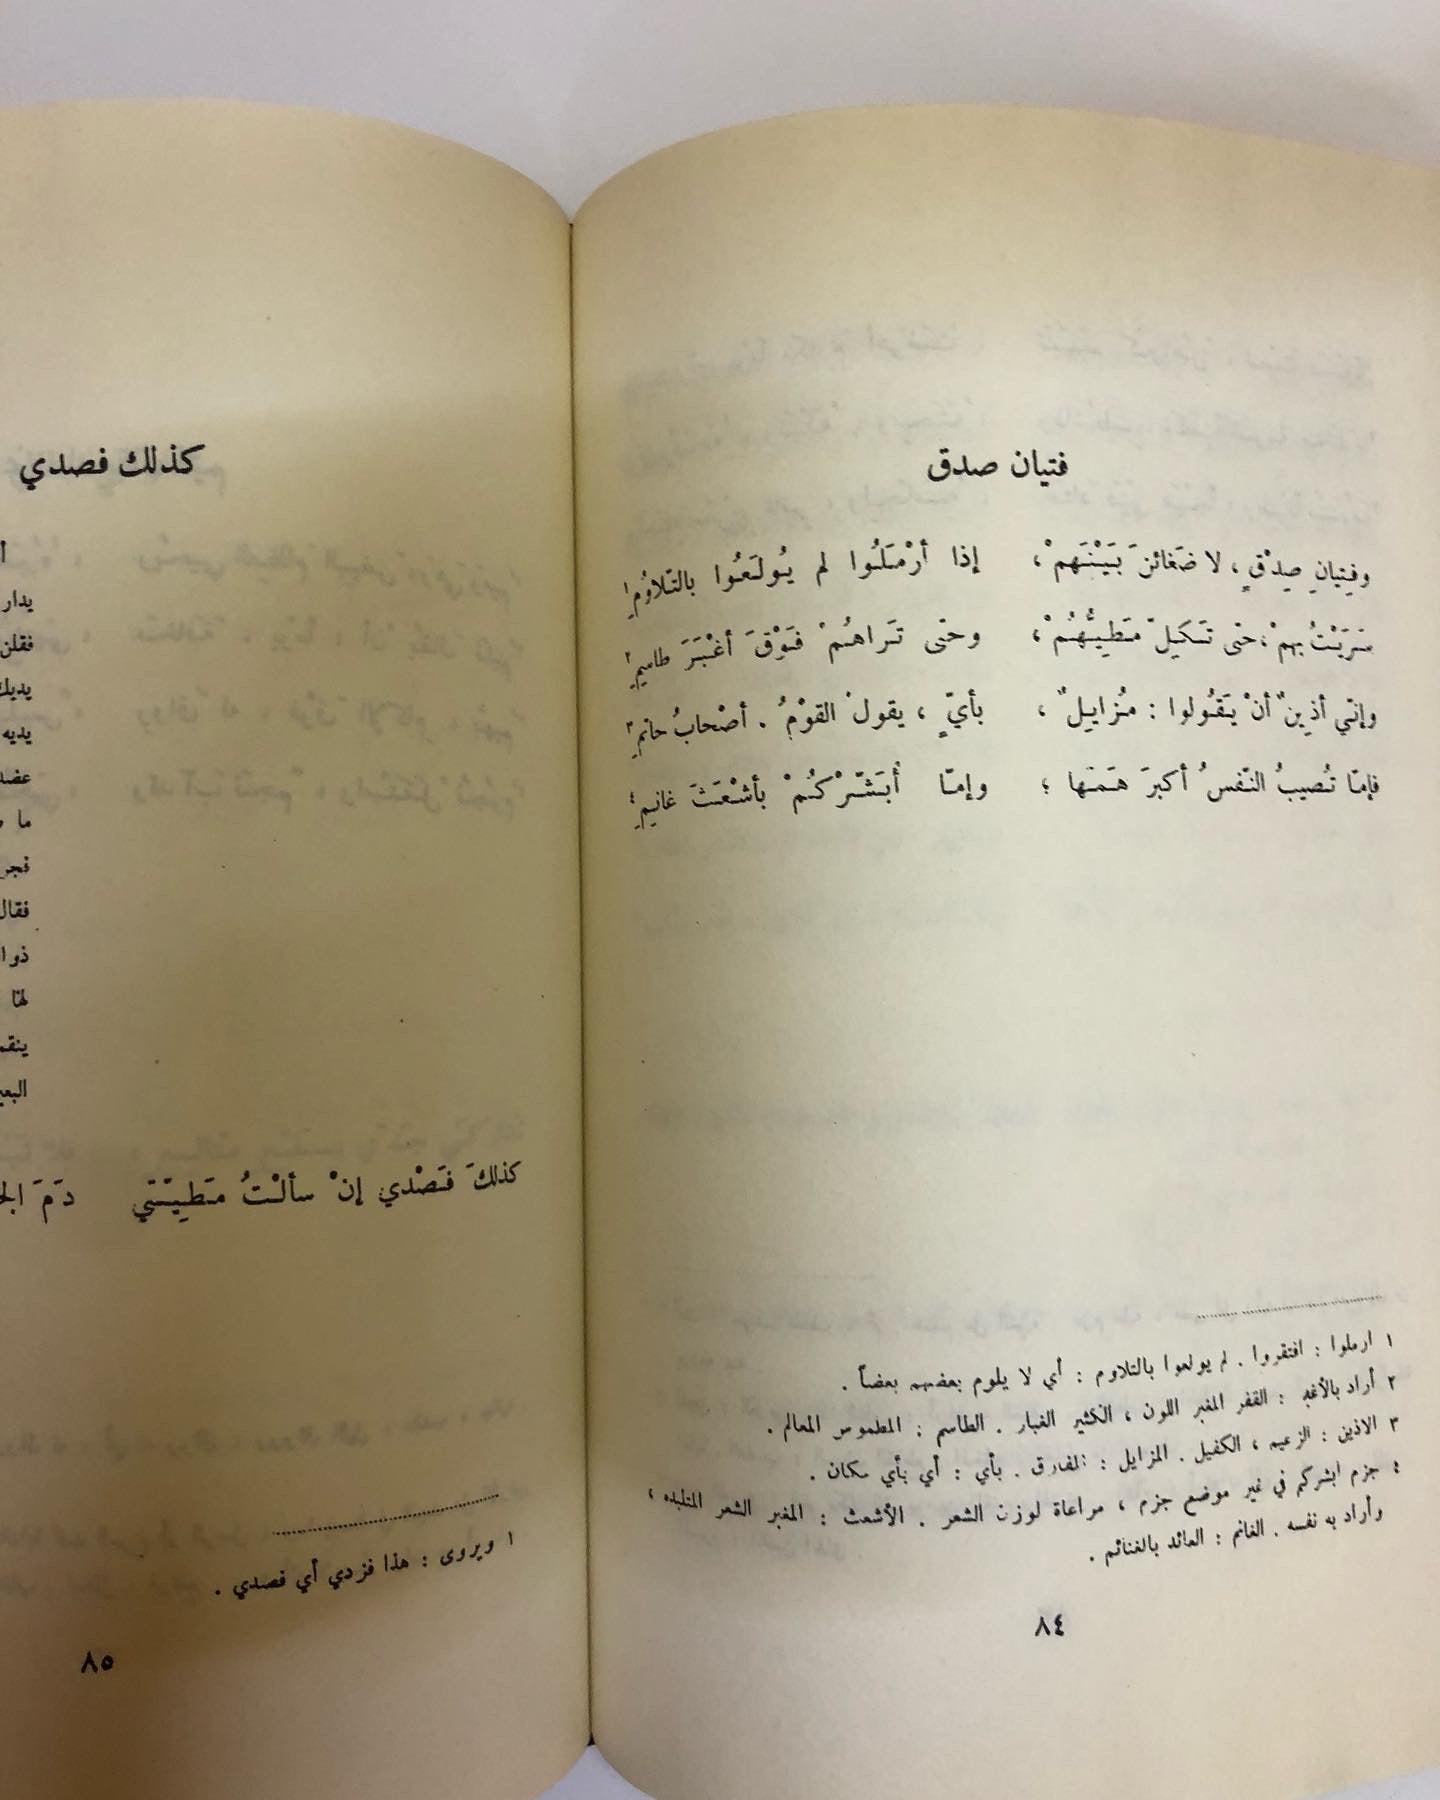 فتيان صدق
وفِتيانِ صِدْقٍ ، لا ضَغائنَ بَيْنَهمْ ، إذا أرْمَلُوا لم يُولَعُوا بالتّلاوُمِ ١
سَرَيْتُ بهمْ ، حتى تَكَيلّ مَطِيّهُمْ ، وحتى تَراهُمْ فَوْقَ أغْبَرَ طاسِمِ ٢
وإنّي أذِينٌ أنْ يَقُولوا : مُزايِلٌ ، بأيٍّ ، يقولُ القوْمُ . أصْحابُ حاتمِ ٣
فإمّا تُصيبُ النّفسُ أكبرَ هَمّها ؛ وإمّا أُبَشّرْكُمْ بأشْعَثَ غانِمِ ٤
١ ارملوا : افتقروا . لم يولعوا بالتلاوم : أي لا يلوم بعضهم بعضاً .
٢ أراد بالأغبر : القفر المغبر اللون ، الكثير الغبار . الطاسم : المطموس المعالم .
٣ الاذين : الزعيم ، الكفيل . المزايل : المفارق . بأي : أي بأي مكان .
٤ جزم ابشركم في غير موضع جزم ، مراعاة لوزن الشعر . الأشعث : المغبر الشعر المتلبده ،
وأراد به نفسه . الغانم : العائد بالغنائم .
٨٤
كذلك فصدي
يدار
فقلن
يديك
يديه
عضد
فجر
فقال
لها
ينقم
كذلكَ فَصْدي إنْ سألْتُ مَطِيّتي دَمَ
١ ويروى : هذا فزدي أي فصدي .
٨٥